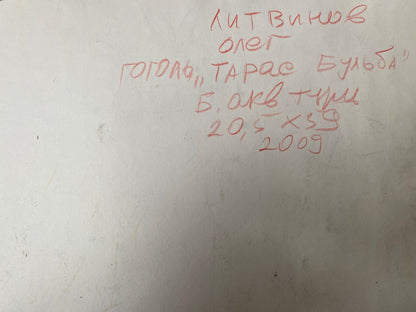 ЛИТВИНОВ
ОЛЕГ
ГОГОЛЬ „ТАРАС БУЛЬБА"
Б. акв тушь
20,5 х 39
2009